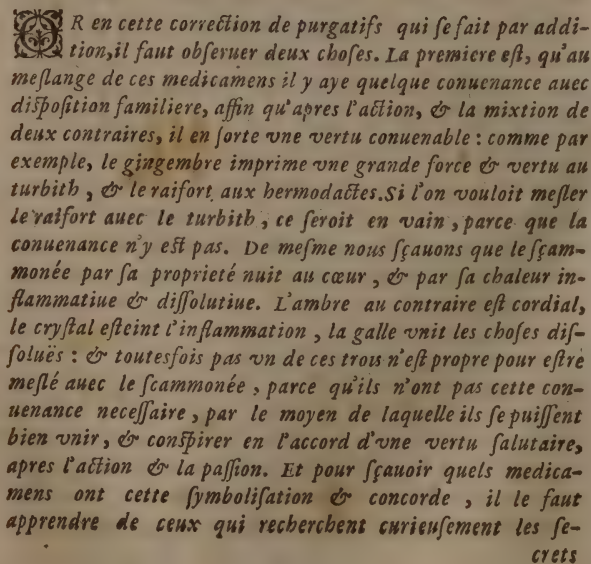 OR en cette correction de purgatifs qui ſe fait par addi-
tion, il faut obſeruer deux choſes. La premiere eſt, qu'au
meſlange de ces medicamens il y aye quelque conuenance auec
diſpoſition familiere, affin qu'apres l'action, & la mixtion de
deux contraires, il en ſorte vne vertu conuenable : comme par
exemple, le gingembre imprime vne grande force & vertu au
turbith , & le raifort aux hermodactes. Si l'on vouloit meſler
le raifort auec le turbith , ce ſeroit en vain , parce que la
conuenance n'y eſt pas. De meſme nous ſçauons que le ſçam-
monée par ſa proprieté nuit au cœur , & par ſa chaleur in-
flammatiue & diſſolutiue. L'ambre au contraire eſt cordial,
le cryſtal eſteint l'inflammation , la galle vnit les choſes diſ-
ſoluës : & toutesfois pas vn de ces trois n'eſt propre pour eſtre
meſlé auec le ſcammonée , parce qu'ils n'ont pas cette con-
uenance neceſſaire , par le moyen de laquelle ils ſe puiſſent
bien vnir, & conſpirer en l'accord d'vne vertu ſalutaire,
apres l'action & la paſſion. Et pour ſçauoir quels medica-
mens ont cette ſymboliſation & concorde , il le faut
apprendre de ceux qui recherchent curieuſement les ſe-
crets